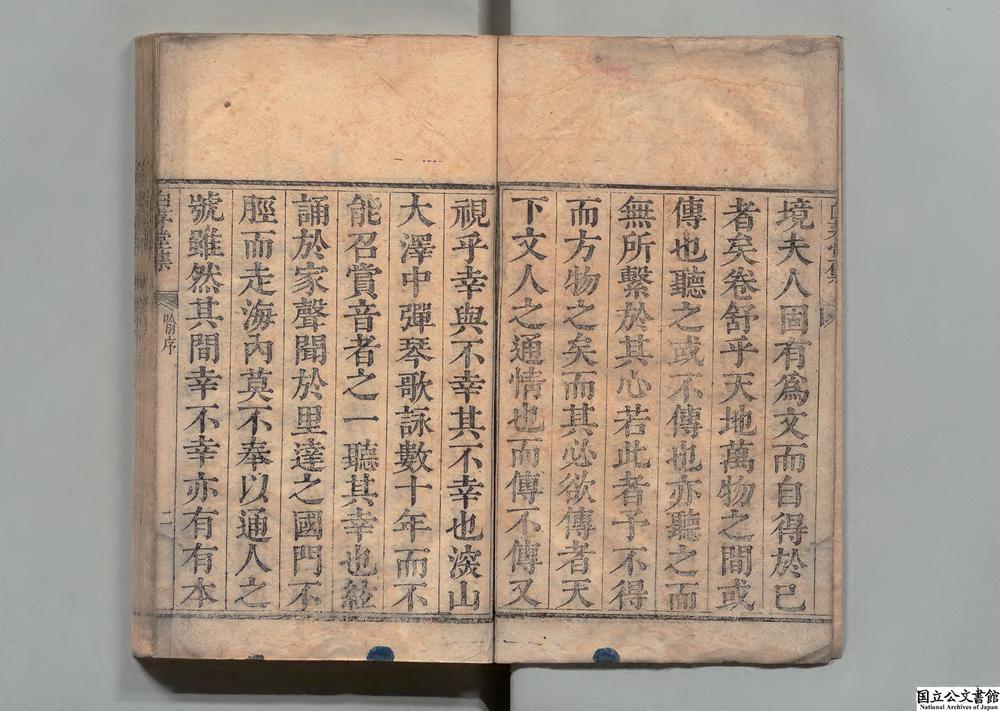 境夫人固有爲文而自得於已
者矣卷舒乎天地萬物之間或
傳也聽之或不傳也亦聽之而
無所繫於其心若此者予不得
而方物之矣而其必欲傳者天
下文人之通情也而傳不傳又
視乎幸與不幸其不幸也深山
大澤中彈琴歌詠數十年而不
能召賞音者之一聽其幸也絃
誦於家聲聞於里達之國門不
脛而走海內莫不奉以通人之
號雖然其間幸不幸亦有有本
堂集
序
二
国立公文書館
National Archives of Japan